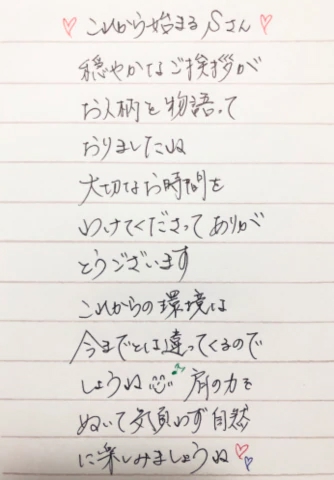 これから始まるSさん
穏やかなご挨拶が
お人柄を物語って
おりましたね
大切なお時間を
わけてくださってありが
とうございます
これからの環境は
今までとは違ってくるので
しょうね 肩の力を
ぬいて気負わず自然
に楽しみましょうね